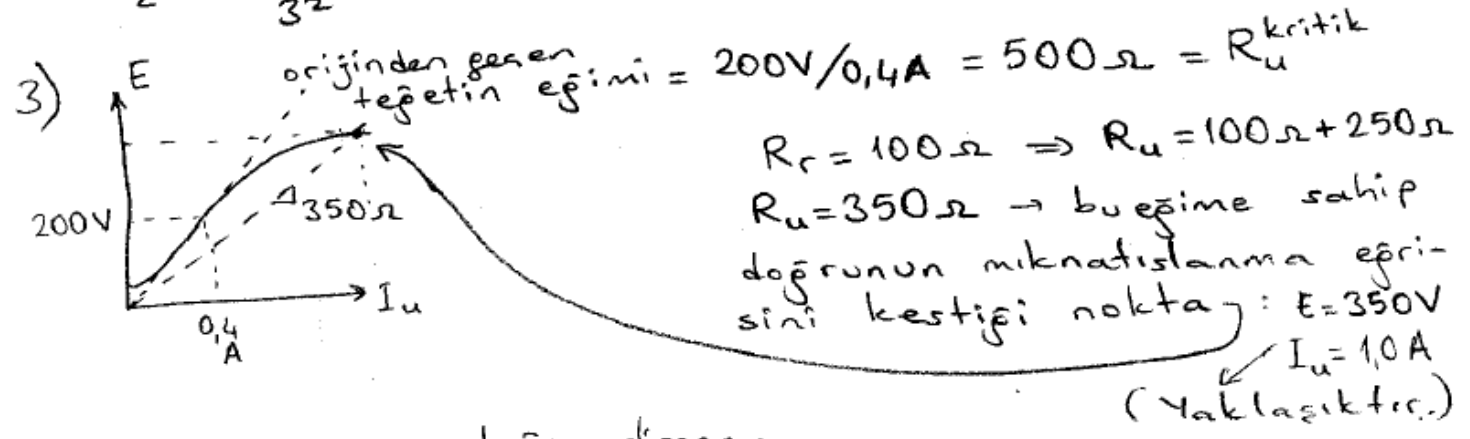 3²
3)
E
orijinden geçen
teğetin eğimi = 200V/0,4A = 500Ω = R_u^kritik
R_r = 100Ω ⇒ R_u = 100Ω + 250Ω
R_u = 350Ω → bu eğime sahip
doğrunun mıknatıslanma eğri-
sini kestiği nokta : E = 350V
I_u = 1,0 A
(Yaklaşıktır.)
350Ω
200V
I_u
0,4
A